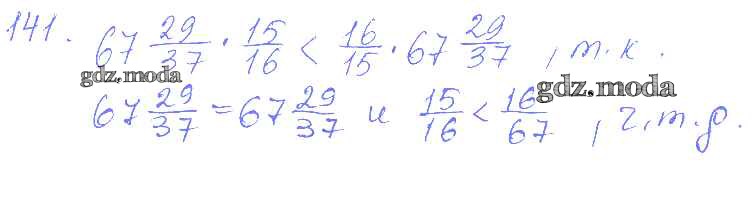 141. 67 29/37 · 15/16 < 16/15 · 67 29/37, т.к.
gdz.moda
gdz.moda
67 29/37 = 67 29/37 и 15/16 < 16/67, ч.т.д.